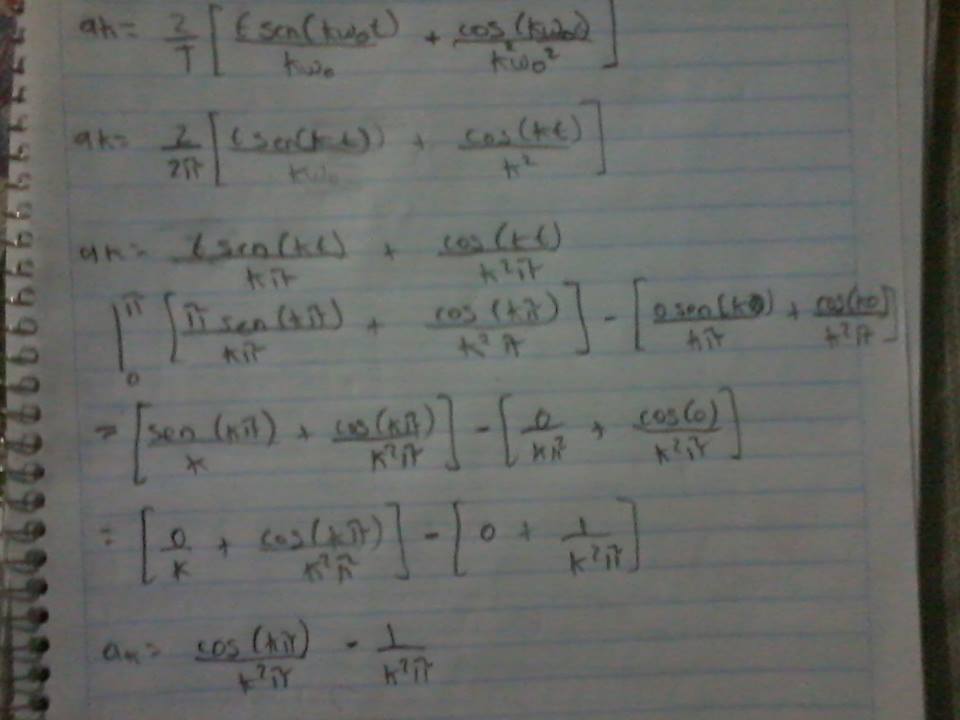 ak= 2/T [ t sen(kω₀t)/kω₀ + cos(kω₀t)/k²ω₀² ]
ak= 2/2π [ t sen(kt)/kω₀ + cos(kt)/k² ]
ak= t sen(kt)/kπ + cos(kt)/k²π
|₀^π [ π sen(kπ)/kπ + cos(kπ)/k²π ] - [ 0 sen(k0)/kπ + cos(k0)/k²π ]
= [ sen(kπ)/k + cos(kπ)/k²π ] - [ 0/kπ + cos(0)/k²π ]
= [ 0/k + cos(kπ)/k²π ] - [ 0 + 1/k²π ]
ak= cos(kπ)/k²π - 1/k²π